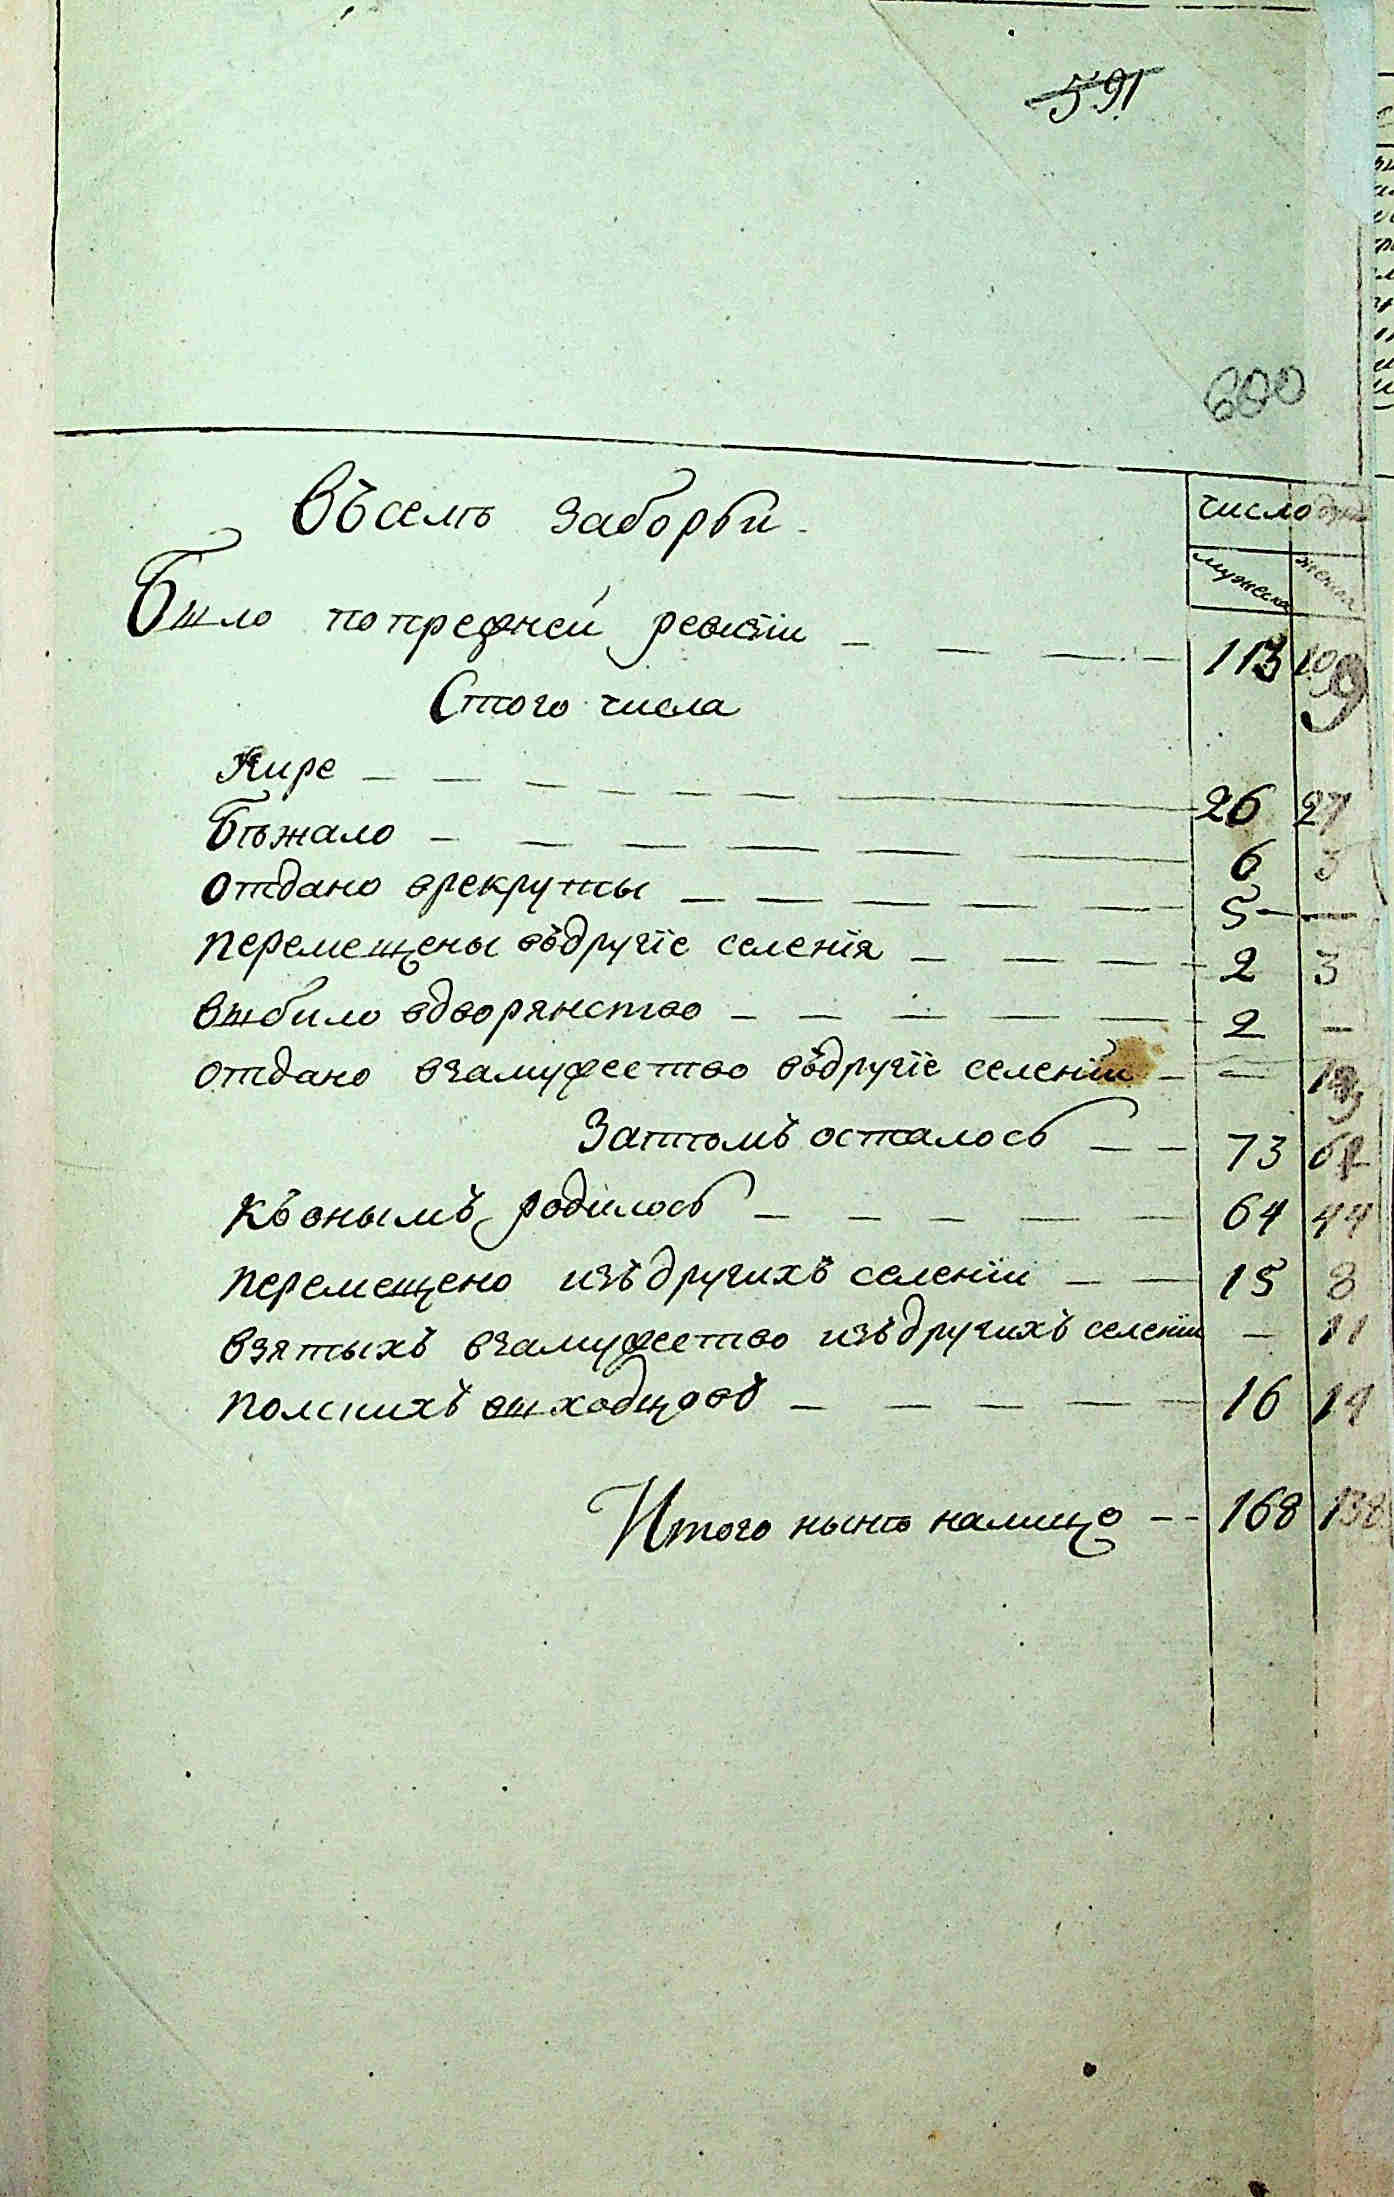 591
600
Въселѣ Заборьи
число душъ
мужеска женска
Было попрежней ревизіи — — — — 113 109
Стого числа
Ҟмре — — — — — 26 27
Бѣжало — — — — — 6 3
Отдано врекруты — — — — — 5 — —
перемещены въдругіе селенія — — — — 2 3
выбило вдворянство — — — — — 2 —
отдано взамужество въдругіе селеніи — — 13
Затѣмъ осталось — — 73 62
Къонымъ родилось — — — — — 64 44
перемещено изъдругихъ селеніи — — 15 8
взятыхъ взамужество изъдругихъ селеніи — 11
полскихъ выходцовъ — — — — — 16 14
Итого нынѣ налицо — — 168 138